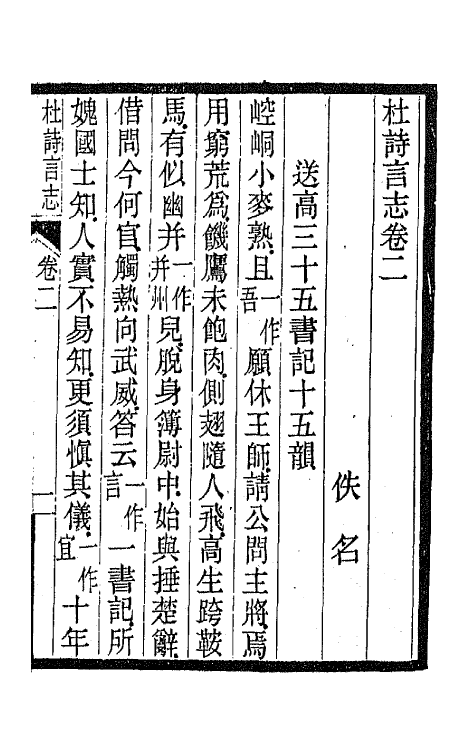 杜詩言志卷二
佚名
送高三十五書記十五韻
崆峒小麥熟且一作吾願休王師請公問主將焉
用窮荒爲饑鷹未飽肉側翅隨人飛高生跨鞍
馬有似幽并一作并州兒脫身簿尉中始與捶楚辭
借問今何官觸熱向武威答云一作言一書記所
媿國士知人實不易知更須愼其儀一作宜十年
杜詩言志
卷二
一